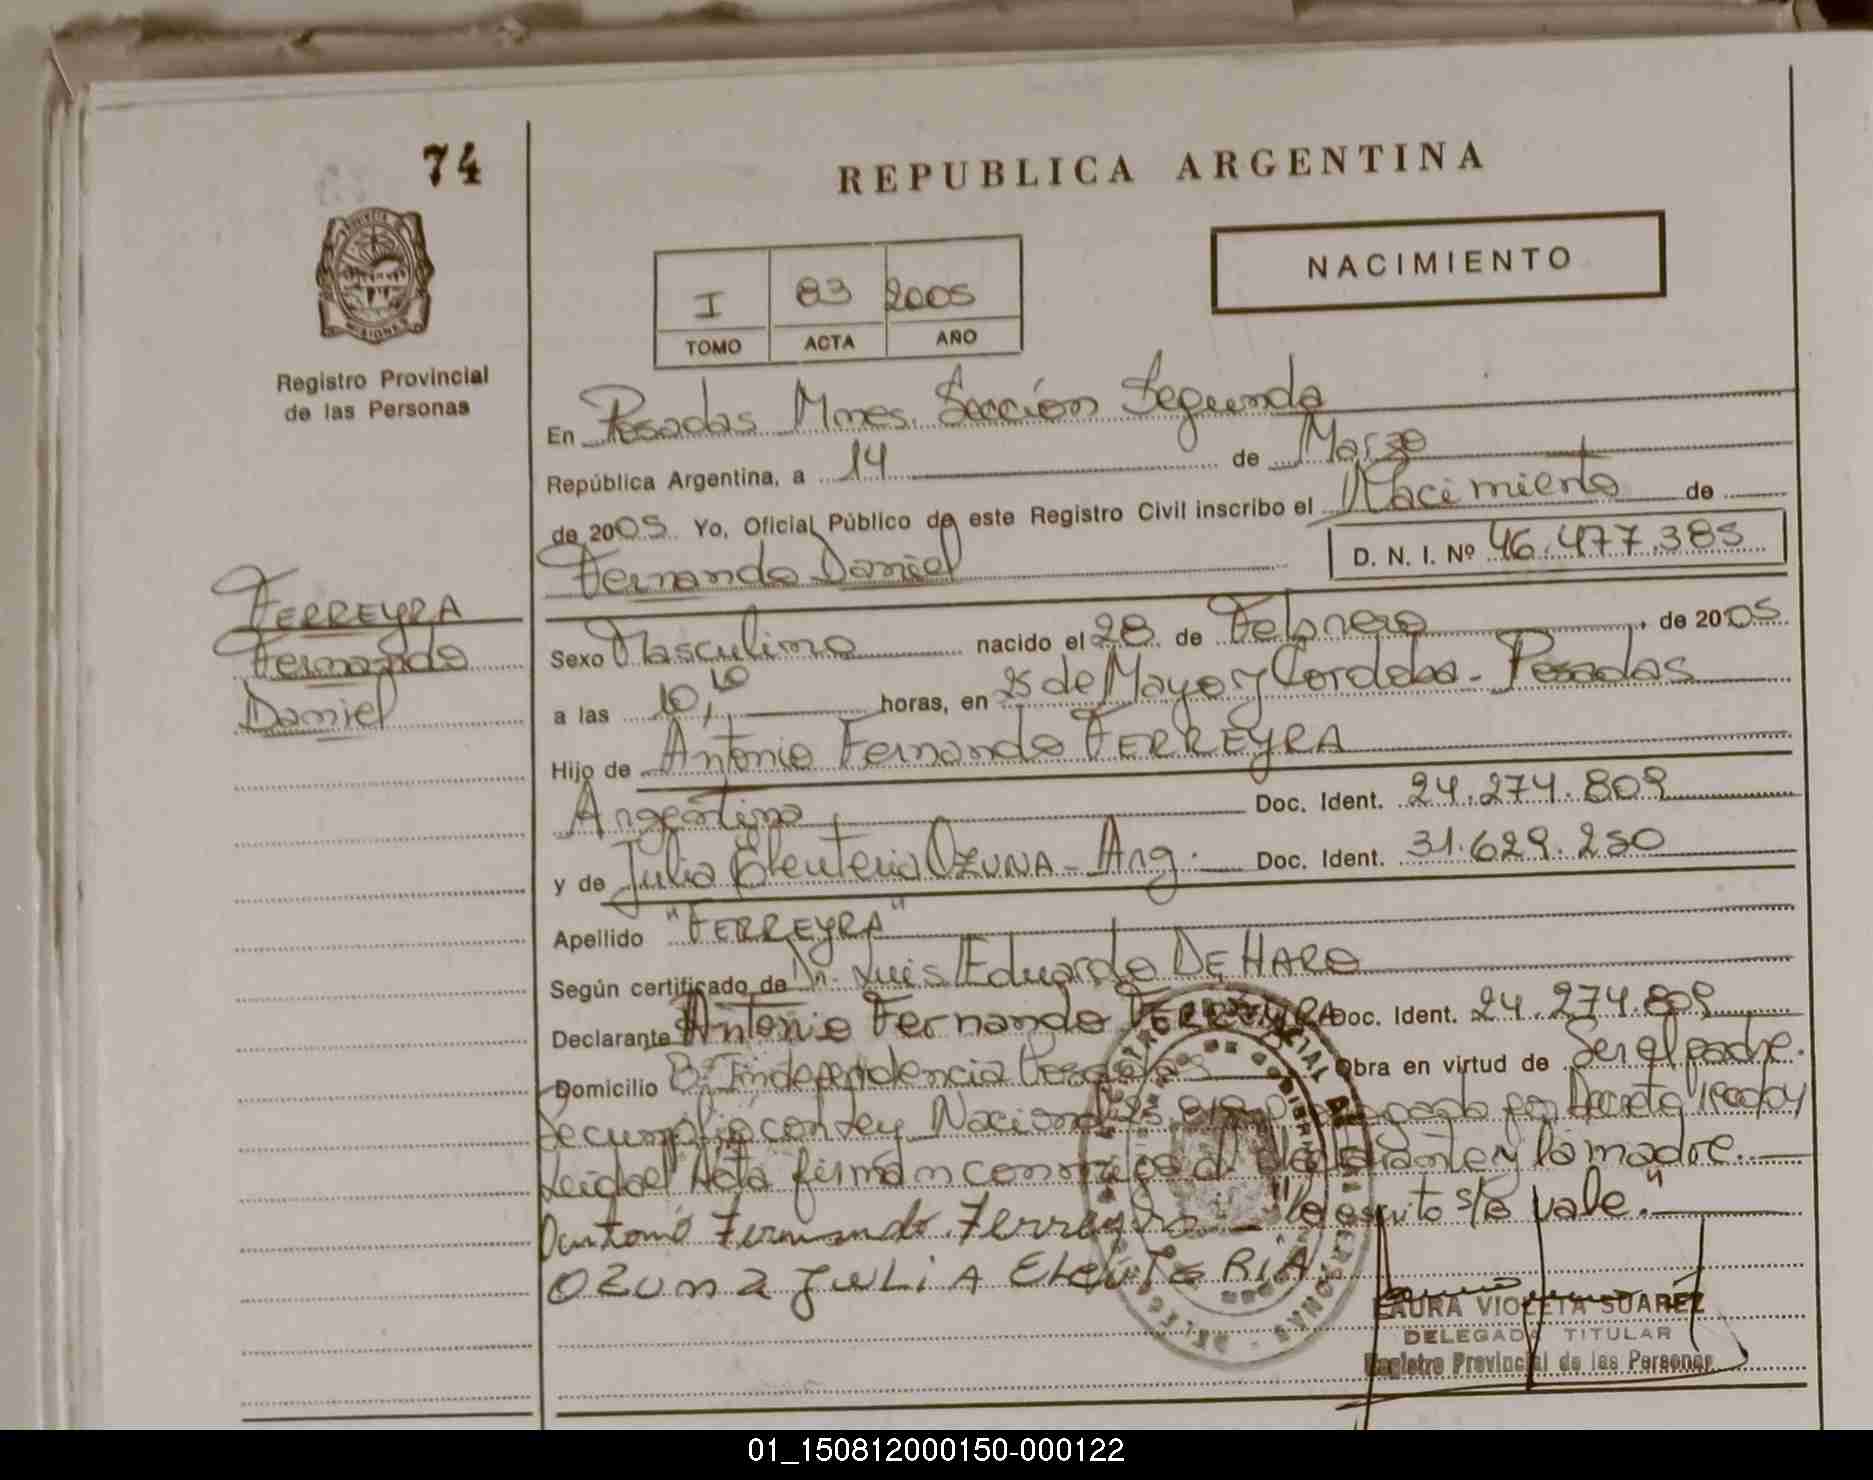 74
REPUBLICA ARGENTINA
NACIMIENTO
I 83 2005
TOMO ACTA AÑO
MISIONES
Registro Provincial
de las Personas
En Posadas Mnes. Sección Segunda
República Argentina, a 14 de Marzo
de 2005 Yo, Oficial Público de este Registro Civil inscribo el Nacimiento de
Fernando Daniel D. N. I. Nº 46.477.385
FERREYRA
Fernando
Daniel
Sexo Masculino nacido el 28 de Febrero, de 2005
a las 10,10 horas, en 25 de Mayo y Cordoba - Posadas
Hijo de Antonio Fernando FERREYRA
Argentino Doc. Ident. 24.274.809
y de Julia Eleuteria OZUNA - Arg. Doc. Ident. 31.629.250
Apellido "FERREYRA"
Según certificado de Dr. Luis Eduardo DE HARO
Declarante Antonio Fernando FERREYRA Doc. Ident. 24.274.809
Domicilio Bº Independencia Posadas Obra en virtud de Ser el padre.
Se cumplió con Ley Nacional 25.819 por Decreto
Leida el Acta firman conmigo el declarante y la madre.
Antonio Fernando Ferreyra - "lo escrito s/e vale."
OZUNA JULIA ELEUTERIA
LAURA VIOLETA SUAREZ
DELEGADA TITULAR
Registro Provincial de las Personas
01_150812000150-000122